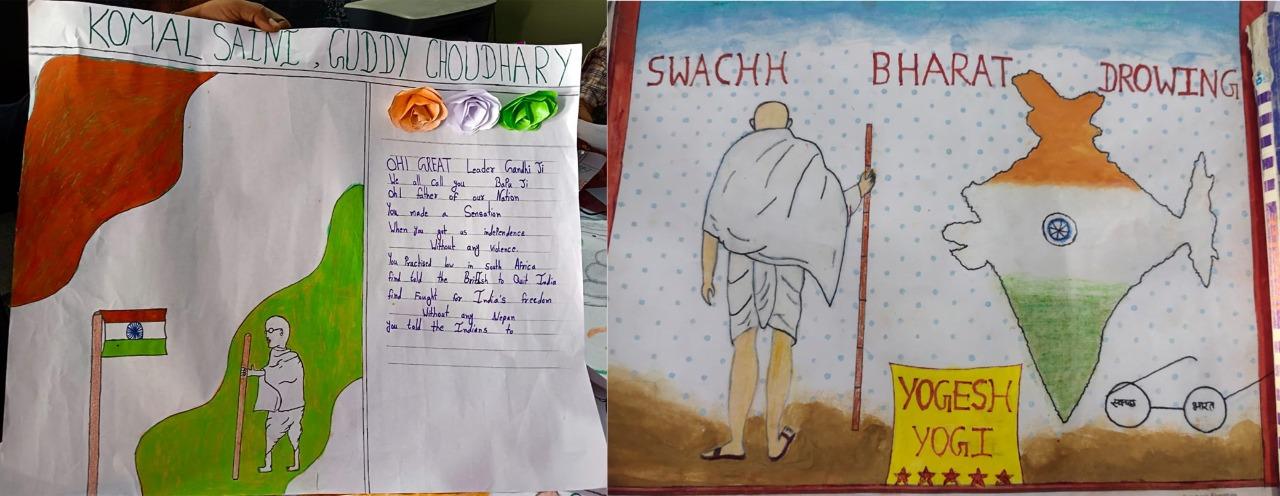 KOMAL SAINI, GUDDY CHOUDHARY
OH! GREAT Leader Gandhi Ji
We all Call you BaPu Ji
Oh! father of our Nation
You made a Sensation
When you got us indefendence
Without any Violence.
You Practised law in South Africa
find told the British to Quit India
find Fought for India's freedom
Without any Wepan
you told the Indians to
SWACHH BHARAT DROWING
YOGESH
YOGI
स्वच्छ भारत